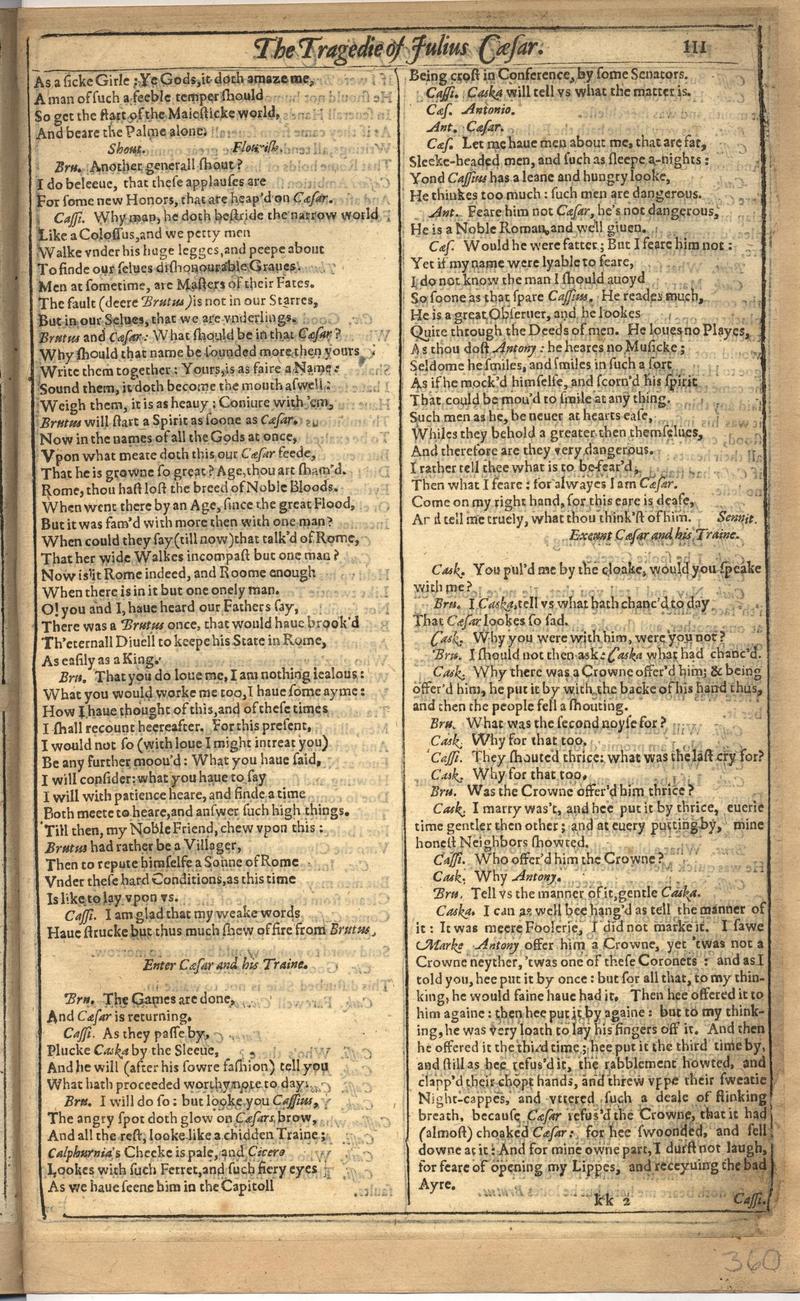 The Tragedie of Julius Cæsar. 111
As a ſicke Girle: Ye Gods, it doth amaze me,
A man of ſuch a feeble temper ſhould
So get the ſtart of the Maieſticke world,
And beare the Palme alone.
Shout. Flouriſh.
Bru. Another generall ſhout?
I do beleeue, that theſe applauſes are
For ſome new Honors, that are heap'd on Cæſar.
Caſſi. Why man, he doth beſtride the narrow world
Like a Coloſſus, and we petty men
Walke vnder his huge legges, and peepe about
To finde our ſelues diſhonourable Graues.
Men at ſometime, are Maſters of their Fates.
The fault (deere Brutus) is not in our Starres,
But in our Selues, that we are vnderlings.
Brutus and Cæſar: What ſhould be in that Cæſar?
Why ſhould that name be ſounded more then yours
Write them together: Yours, is as faire a Name:
Sound them, it doth become the mouth aſwell:
Weigh them, it is as heauy: Coniure with 'em,
Brutus will ſtart a Spirit as ſoone as Cæſar.
Now in the names of all the Gods at once,
Vpon what meate doth this our Cæſar feede,
That he is growne ſo great? Age, thou art ſham'd.
Rome, thou haſt loſt the breed of Noble Bloods.
When went there by an Age, ſince the great Flood,
But it was fam'd with more then with one man?
When could they ſay (till now) that talk'd of Rome,
That her wide Walkes incompaſt but one man?
Now is it Rome indeed, and Roome enough
When there is in it but one onely man.
O! you and I, haue heard our Fathers ſay,
There was a Brutus once, that would haue brook'd
Th'eternall Diuell to keepe his State in Rome,
As eaſily as a King.
Bru. That you do loue me, I am nothing iealous:
What you would worke me too, I haue ſome ayme:
How I haue thought of this, and of theſe times
I ſhall recount heereafter. For this preſent,
I would not ſo (with loue I might intreat you)
Be any further moou'd: What you haue ſaid,
I will conſider: what you haue to ſay
I will with patience heare, and finde a time
Both meete to heare, and anſwer ſuch high things.
Till then, my Noble Friend, chew vpon this:
Brutus had rather be a Villager,
Then to repute himſelfe a Sonne of Rome
Vnder theſe hard Conditions, as this time
Is like to lay vpon vs.
Caſſi. I am glad that my weake words
Haue ſtrucke but thus much ſhew of fire from Brutus,
Enter Cæſar and his Traine.
Bru. The Games are done,
And Cæſar is returning.
Caſſi. As they paſſe by,
Plucke Caska by the Sleeue,
And he will (after his ſowre faſhion) tell you
What hath proceeded worthy note to day.
Bru. I will do ſo: but looke you Caſſius,
The angry ſpot doth glow on Cæſars brow,
And all the reſt, looke like a chidden Traine;
Calphurnia's Cheeke is pale, and Cicero
Lookes with ſuch Ferret, and ſuch fiery eyes
As we haue ſeene him in the Capitoll
Being croſt in Conference, by ſome Senators.
Caſſi. Caska will tell vs what the matter is.
Cæſ. Antonio.
Ant. Cæſar.
Cæſ. Let me haue men about me, that are fat,
Sleeke-headed men, and ſuch as ſleepe a-nights:
Yond Caſſius has a leane and hungry looke,
He thinkes too much: ſuch men are dangerous.
Ant. Feare him not Cæſar, he's not dangerous,
He is a Noble Roman, and well giuen.
Cæſ. Would he were fatter; But I feare him not:
Yet if my name were lyable to feare,
I do not know the man I ſhould auoyd
So ſoone as that ſpare Caſſius. He reades much,
He is a great Obſeruer, and he lookes
Quite through the Deeds of men. He loues no Playes,
As thou doſt Antony: he heares no Muſicke;
Seldome he ſmiles, and ſmiles in ſuch a ſort
As if he mock'd himſelfe, and ſcorn'd his ſpirit
That could be mou'd to ſmile at any thing.
Such men as he, be neuer at hearts eaſe,
Whiles they behold a greater then themſelues,
And therefore are they very dangerous.
I rather tell thee what is to be fear'd,
Then what I feare: for alwayes I am Cæſar.
Come on my right hand, for this eare is deafe,
And tell me truely, what thou think'ſt of him. Sennit.
Exeunt Cæſar and his Traine.
Cask. You pul'd me by the cloake, would you ſpeake
with me?
Bru. I Caska, tell vs what hath chanc'd to day
That Cæſar lookes ſo ſad.
Cask. Why you were with him, were you not?
Bru. I ſhould not then ask Caska what had chanc'd.
Cask. Why there was a Crowne offer'd him; & being
offer'd him, he put it by with the backe of his hand thus,
and then the people fell a ſhouting.
Bru. What was the ſecond noyſe for?
Cask. Why for that too.
Caſſi. They ſhouted thrice: what was the laſt cry for?
Cask. Why for that too.
Bru. Was the Crowne offer'd him thrice?
Cask. I marry was't, and hee put it by thrice, euerie
time gentler then other; and at euery putting by, mine
honeſt Neighbors ſhowted.
Caſſi. Who offer'd him the Crowne?
Cask. Why Antony.
Bru. Tell vs the manner of it, gentle Caska.
Caska. I can as well bee hang'd as tell the manner of
it: It was meere Foolerie, I did not marke it. I ſawe
Marke Antony offer him a Crowne, yet 'twas not a
Crowne neyther, 'twas one of theſe Coronets: and as I
told you, hee put it by once: but for all that, to my thin-
king, he would faine haue had it. Then hee offered it to
him againe: then hee put it by againe: but to my think-
ing, he was very loath to lay his fingers off it. And then
he offered it the third time; hee put it the third time by,
and ſtill as hee refus'd it, the rabblement howted, and
clapp'd their chopt hands, and threw vppe their ſweatie
Night-cappes, and vttered ſuch a deale of ſtinking
breath, becauſe Cæſar refus'd the Crowne, that it had
(almoſt) choaked Cæſar: for hee ſwoonded, and fell
downe at it: And for mine owne part, I durſt not laugh,
for feare of opening my Lippes, and receyuing the bad
Ayre.
kk 2 Caſſi.
360